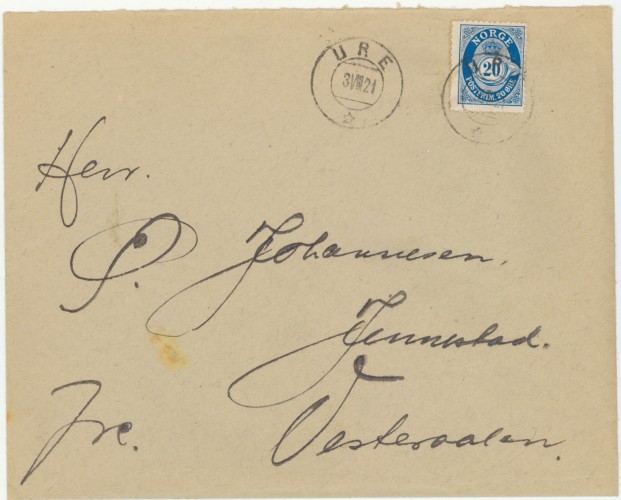 URE
3 VIII 21
NORGE
20
POSTFRIM. 20 ØRE
Herr.
P. Johannesen.
Jennestad.
Fre. Vesteraalen.